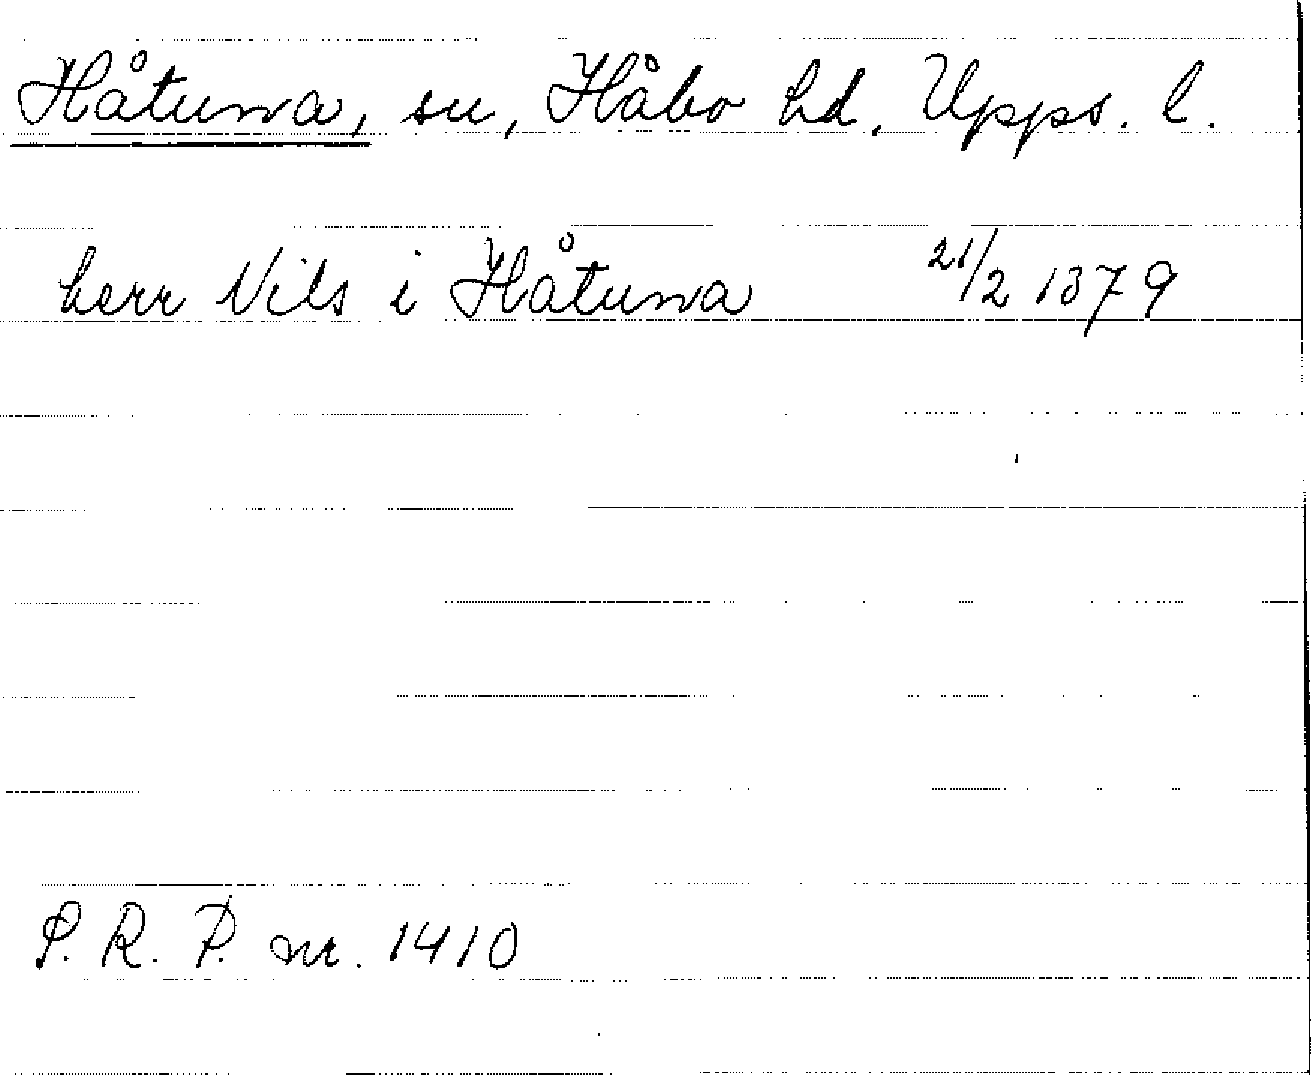 Håtuna, sn, Håbo hd, Upps. l.
herr Nils i Håtuna 21/2 1379
S. R. P. nr. 1410